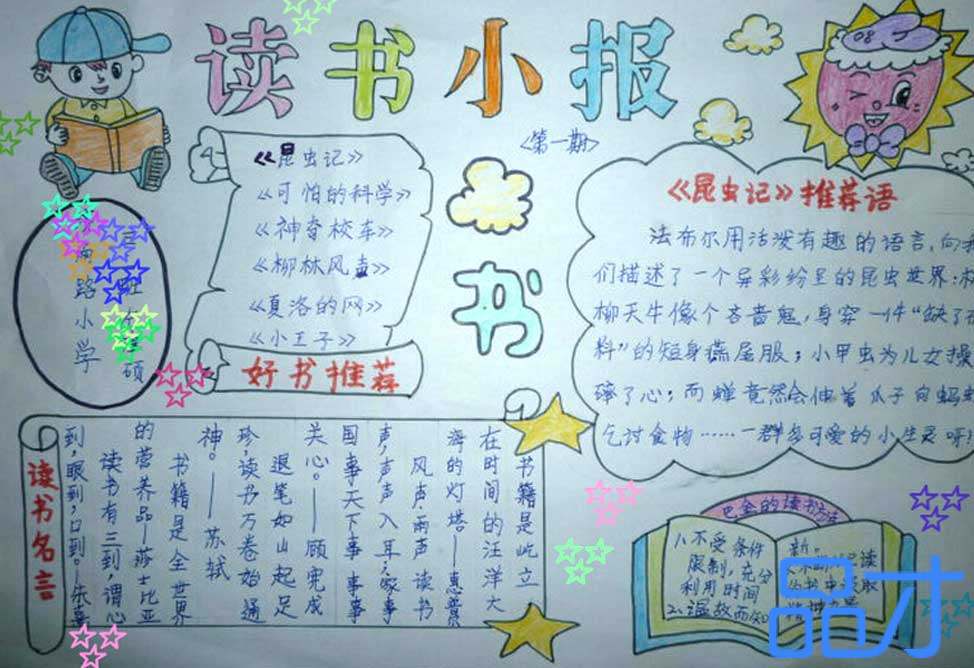 读书小报
〈第一期〉
《昆虫记》
《可怕的科学》
《神奇校车》
《柳林风声》
《夏洛的网》
《小王子》
好书推荐
书
路小学
硕
《昆虫记》推荐语
法布尔用活泼有趣的语言,向
们描述了一个异彩纷呈的昆虫世界:
柳天牛像个吝啬鬼,身穿一件“缺了
料”的短身燕尾服;小甲虫为儿女操
碎了心;而蝉竟然会伸着爪子向蚂
乞讨食物……一群多可爱的小生灵呀
读书名言
书籍是屹立
在时间的汪洋大
海的灯塔。——惠普
风声雨声读书
声,声声入耳;家事
国事天下事,事事
关心。——顾宪成
退笔如山起足
珍,读书万卷始通
神。——苏轼
书籍是全世界
的营养品——莎士比亚
读书有三到,谓心
到,眼到,口到。——朱熹
巴金的读书方法
1、不受条件
限制,充分
利用时间
2、温故而知
新。
读
取
品才